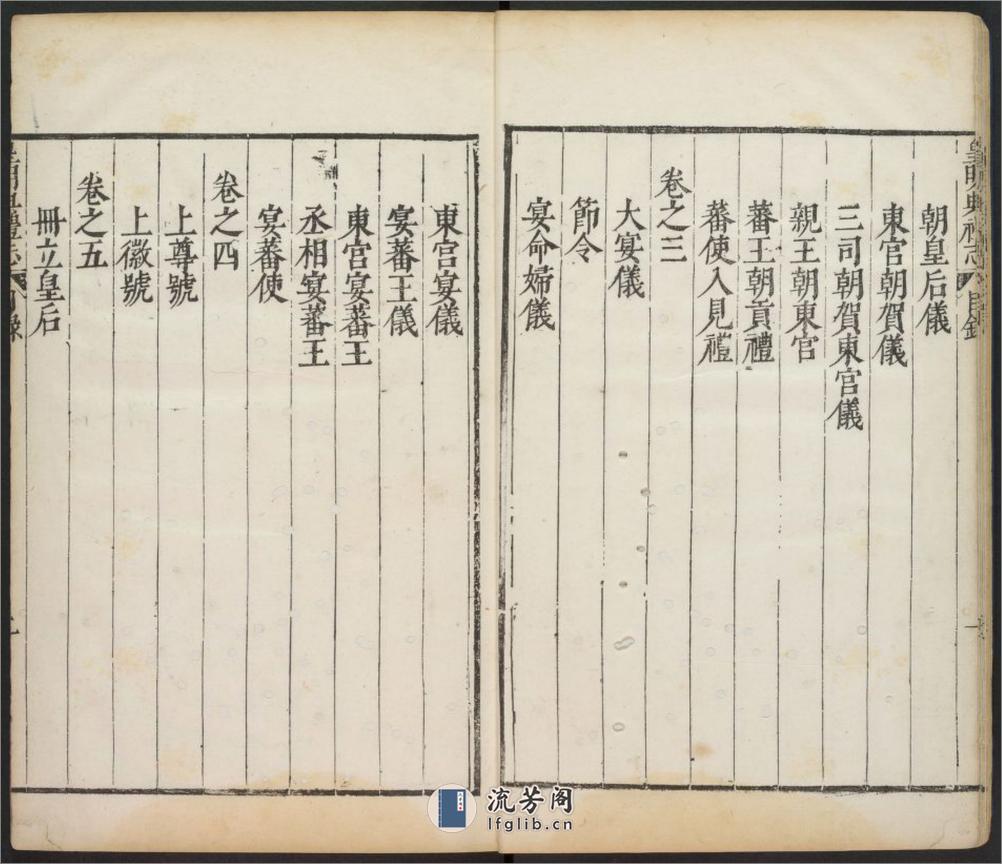 皇明典禮志 目録
朝皇后儀
東宫朝賀儀
三司朝賀東宫儀
親王朝東宫
蕃王朝貢禮
蕃使入見禮
卷之三
大宴儀
節令
宴命婦儀
東宫宴儀
宴蕃王儀
東宫宴蕃王
丞相宴蕃王
宴蕃使
卷之四
上尊號
上徽號
卷之五
冊立皇后
流芳阁
lfglib.cn